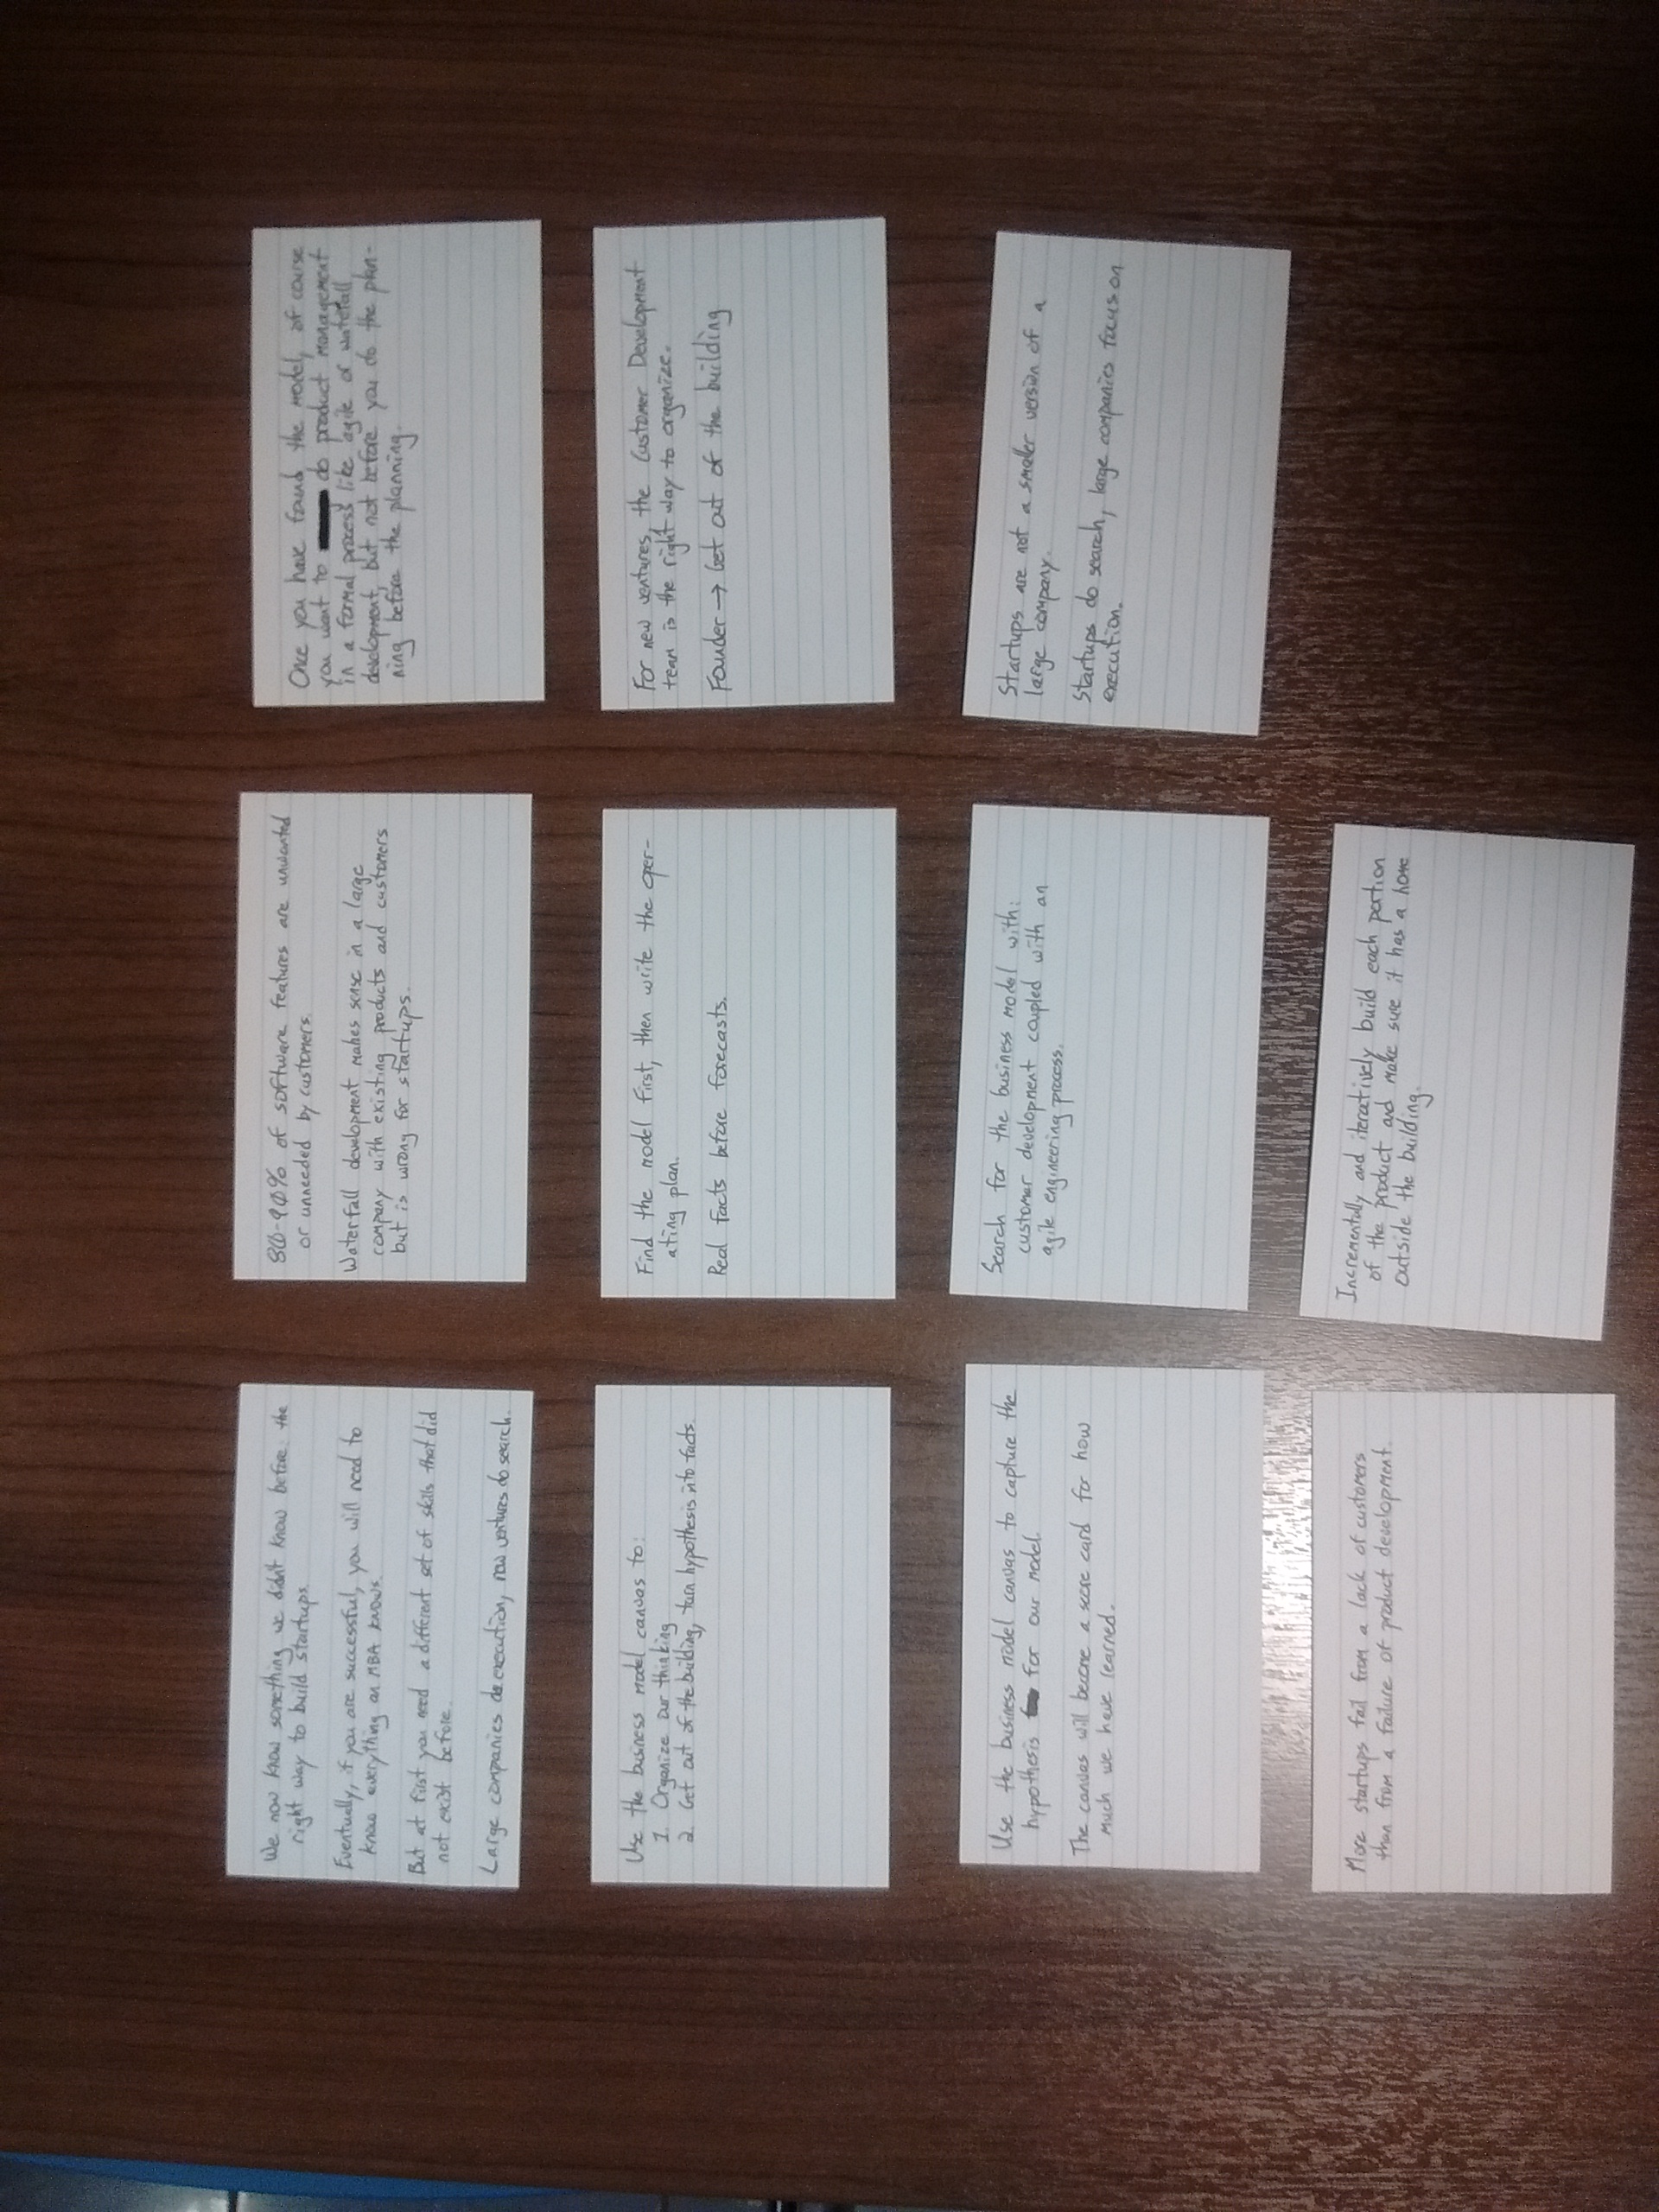 We now know something we didn't know before: the
right way to build startups.
Eventually, if you are successful, you will need to
know everything an MBA knows.
But at first you need a different set of skills that did
not exist before.
Large companies do execution, new ventures do search.
80-90% of software features are unwanted
or unneeded by customers.
Waterfall development makes sense in a large
company with existing products and customers
but is wrong for startups.
Once you have found the model, of course
you want to do product management
in a formal process like agile or waterfall
development, but not before you do the plan-
ning before the planning.
Use the business model canvas to:
1. Organize our thinking
2. Get out of the building, turn hypothesis into facts.
Find the model first, then write the oper-
ating plan.
Real facts before forecasts.
For new ventures, the Customer Development
team is the right way to organize.
Founder → Get out of the building
Use the business model canvas to capture the
hypothesis for our model
The canvas will become a score card for how
much we have learned.
Search for the business model with:
customer development coupled with an
agile engineering process.
Startups are not a smaller version of a
large company.
Startups do search, large companies focus on
execution.
More startups fail from a lack of customers
than from a failure of product development.
Incrementally and iteratively build each portion
of the product and make sure it has a home
outside the building.